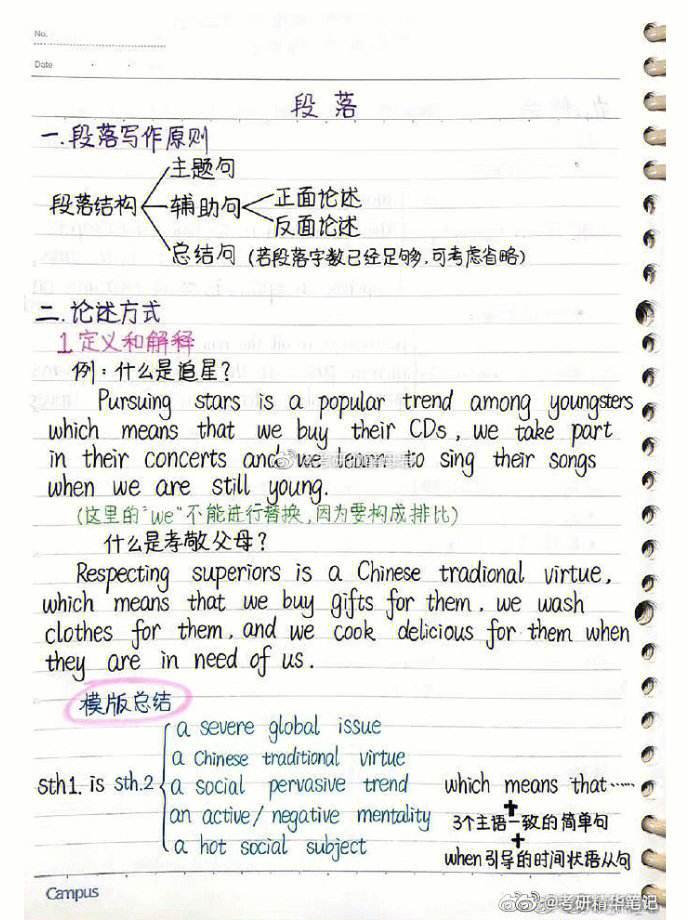 No.
Date
段落
一.段落写作原则
主题句
段落结构 辅助句 正面论述
反面论述
总结句 (若段落字数已经足够,可考虑省略)
二.论述方式
1.定义和解释
例:什么是追星?
Pursuing stars is a popular trend among youngsters
which means that we buy their CDs, we take part
in their concerts and we learn to sing their songs
when we are still young.
(这里的"we"不能进行替换,因为要构成排比)
什么是孝敬父母?
Respecting superiors is a Chinese tradional virtue,
which means that we buy gifts for them, we wash
clothes for them, and we cook delicious for them when
they are in need of us.
模版总结
a severe global issue
a Chinese traditional virtue
sth1. is sth.2 a social pervasive trend which means that……
an active/negative mentality
+
3个主语一致的简单句
+
a hot social subject when引导的时间状语从句
Campus
@考研精华笔记